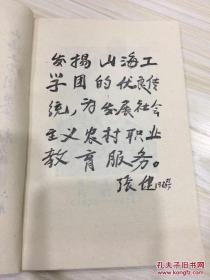 发扬山海工
学团的优良传
统，为发展社会
主义农村职业
教育服务。
张健